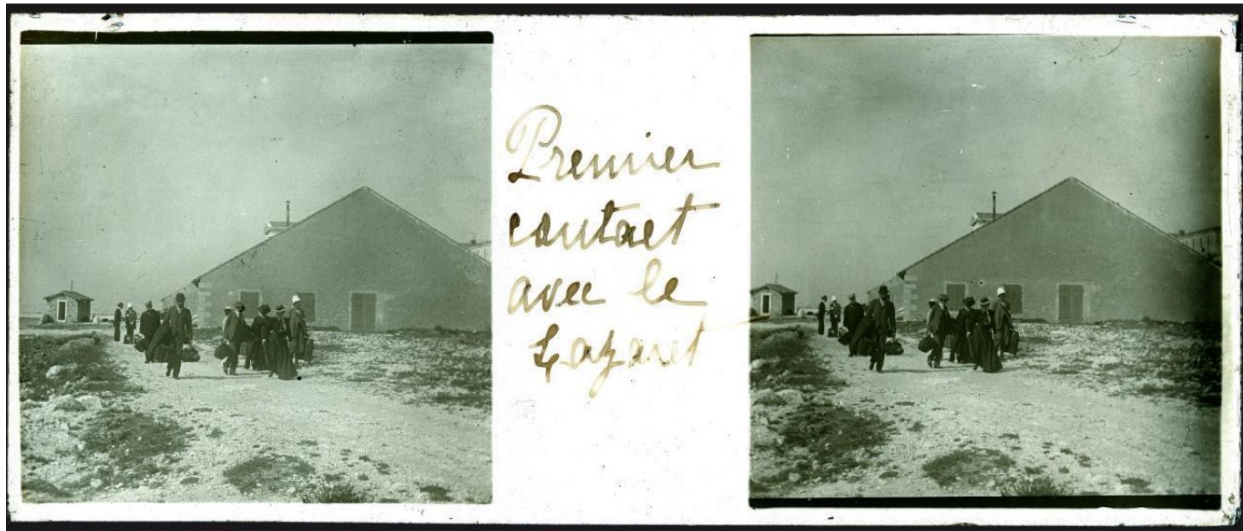 Premier
contact
avec le
Lazaret